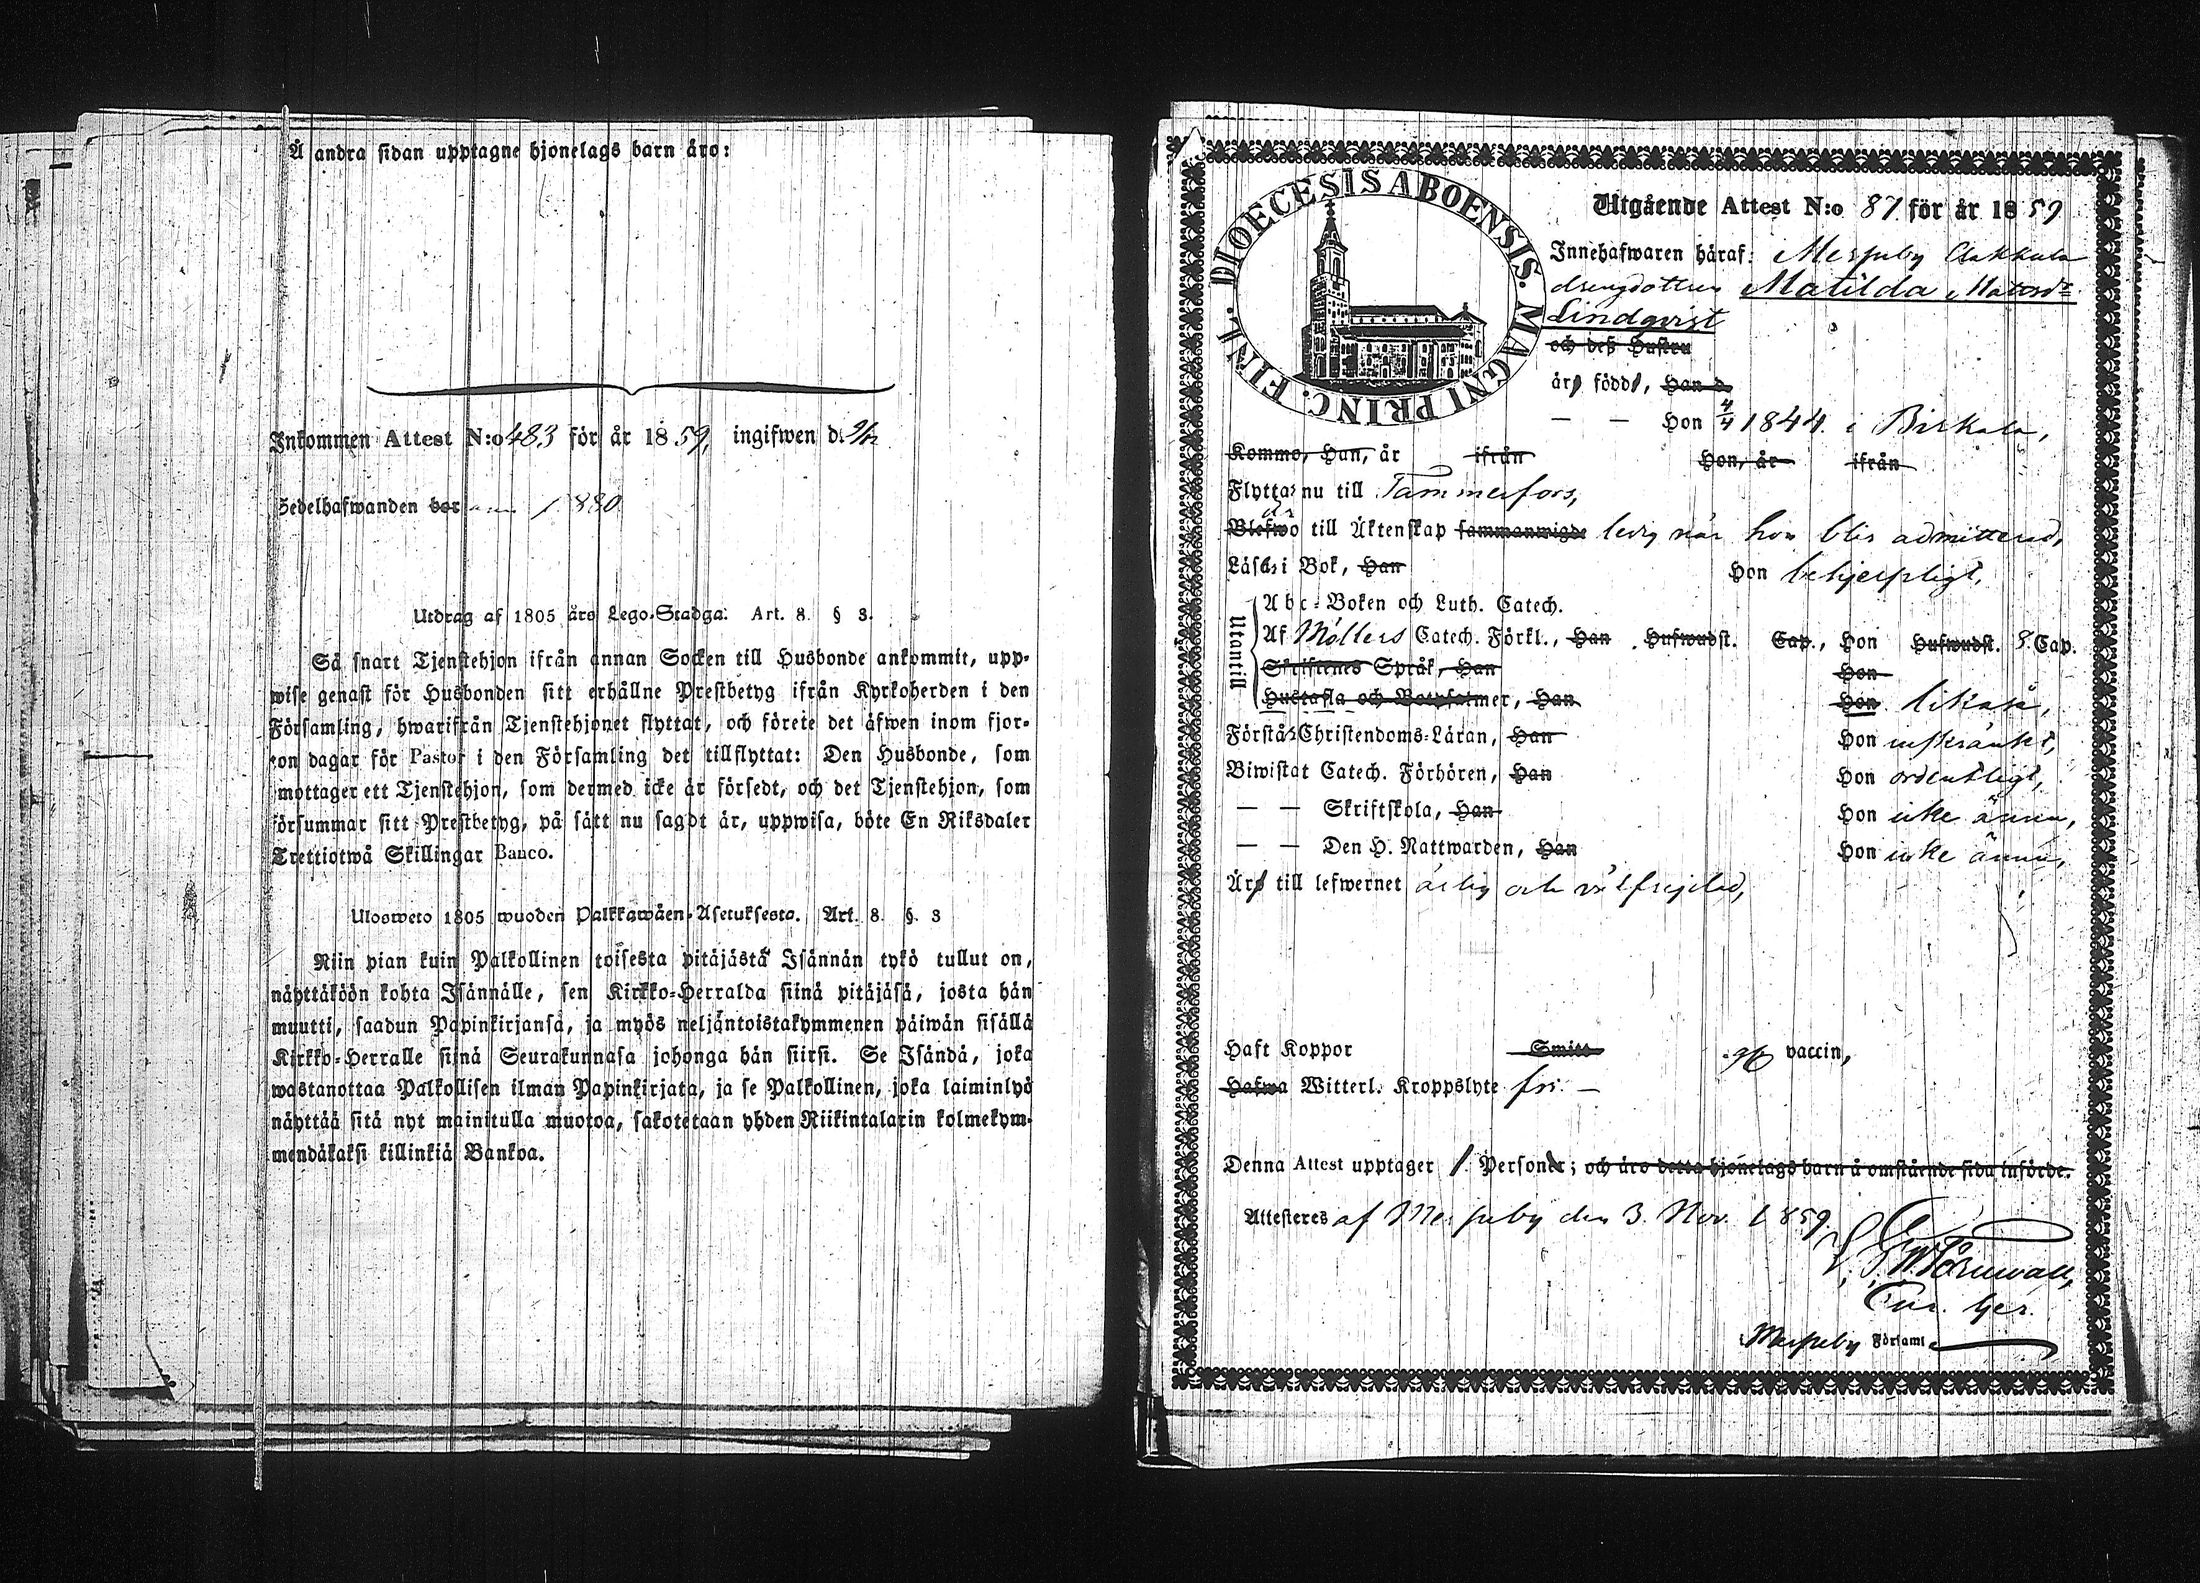 Å andra sidan upptagne hjonelags barn äro:
Inkommen Attest N:o 483 för år 1859, ingifwen d.
Sedelhafwanden bor 880
Utdrag af 1805 års Lego-Stadga. Art. 8. § 3.
Så snart Tjenstehjon ifrån annan Socken till Husbonde ankommit, upp-
wise genast för Husbonden sitt erhållne Prestbetyg ifrån Kyrkoherden i den
Församling, hwarifrån Tjenstehjonet flyttat, och förete det äfwen inom fjor-
ton dagar för Pastor i den Församling det tillflyttat: Den Husbonde, som
mottager ett Tjenstehjon, som dermed icke är försedt, och det Tjenstehjon, som
försummar sitt Prestbetyg, på sätt nu sagdt är, uppwisa, böte En Riksdaler
Trettiotwå Skillingar Banco.
Ulosweto 1805 wuoden Palkkawäen-Asetuksesta. Art. 8. §. 3
Niin pian kuin Palkollinen toisesta pitäjästä Isännän tykö tullut on,
näyttäköön kohta Isännälle, sen Kirkko-Herralda siinä pitäjäsä, josta hän
muutti, saadun Papinkirjansa, ja myös neljäntoistakymmenen päiwän sisällä
Kirkko-Herralle siinä Seurakunnasa johonga hän siirsi. Se Isändä, joka
wastanottaa Palkollisen ilman Papinkirjata, ja se Palkollinen, joka laiminlyö
näyttää sitä nyt mainitulla muotoa, sakotetaan yhden Riikintalarin kolmekym-
mendäkaksi killinkiä Bankoa.
DIOECESIS ABOENSIS. MAGNI PRINC. FINL.
Utgående Attest N:o 87 för år 1859
Innehafwaren häraf: Messuby Clakkala
drengdottren Matilda Matsd:r
Lindqvist
och deß Hustru
är född, Han d.
— — Hon 4/4 1844. i Birkala,
Kommo, Han, år ifrån Hon, år ifrån
Flyttar nu till Tammerfors,
Blefwo är till Äktenskap sammanwigde ledig når hon blir admitterad,
Läser i Bok, Han Hon behjelpligt,
Utantill
Abc-Boken och Luth. Catech.
Af Möllers Catech. Förkl., Han Hufwudst. Cap., Hon Hufwudst. 8 Cap.
Skriftenes Språk, Han Hon
Hustafla och Botpsalmer, Han Hon likaså,
Förstår Christendoms-Läran, Han Hon inskränkt,
Biwistat Catech. Förhören, Han Hon ordentligt,
— — Skriftskola, Han Hon icke ännu,
— — Den H. Nattwarden, Han Hon icke ännu,
Är till lefwernet ärlig och välfrejdad,
Haft Koppor Smitt vaccin,
Hafwa Witterl. Kroppslyte fri. —
Denna Attest upptager 1 Person; och äro detta hjonelags barn å omstående sida införde.
Attesteres af Messuby den 3. Nov. 1859.
Törnwall,
Messuby Församl